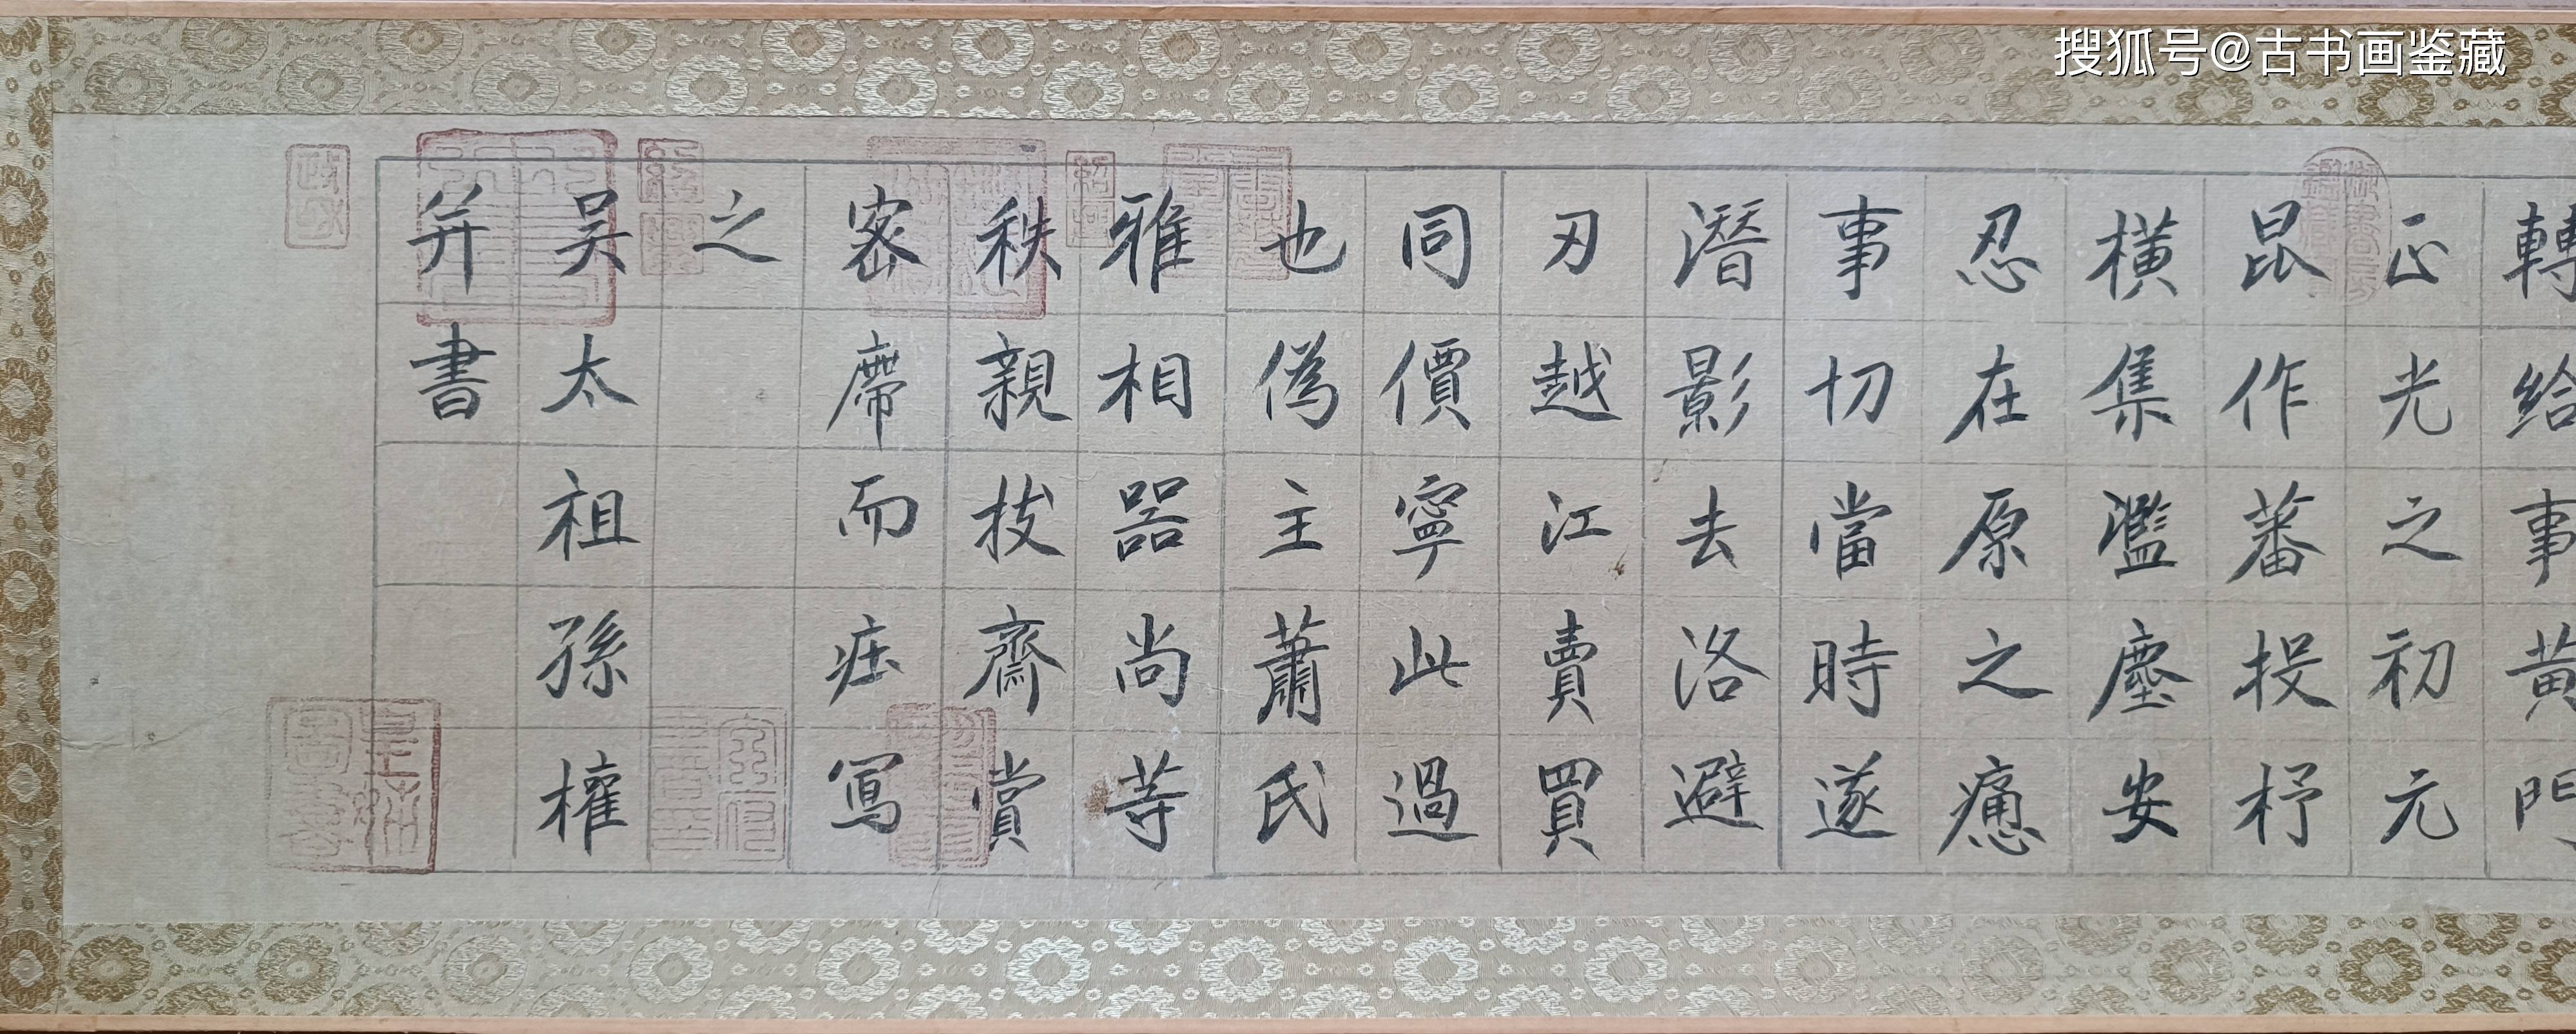 搜狐号@古书画鉴藏
轉給事黃門
正光之初元
昆作蕃投杼
橫集濫塵安
忍在原之癔
事切當時遂
潛影去洛避
刃越江賣買
同價寧此過
也偽主蕭氏
雅相器尚等
秩親技齋賞
密席而疰寫
之
吴太祖孫權
并書